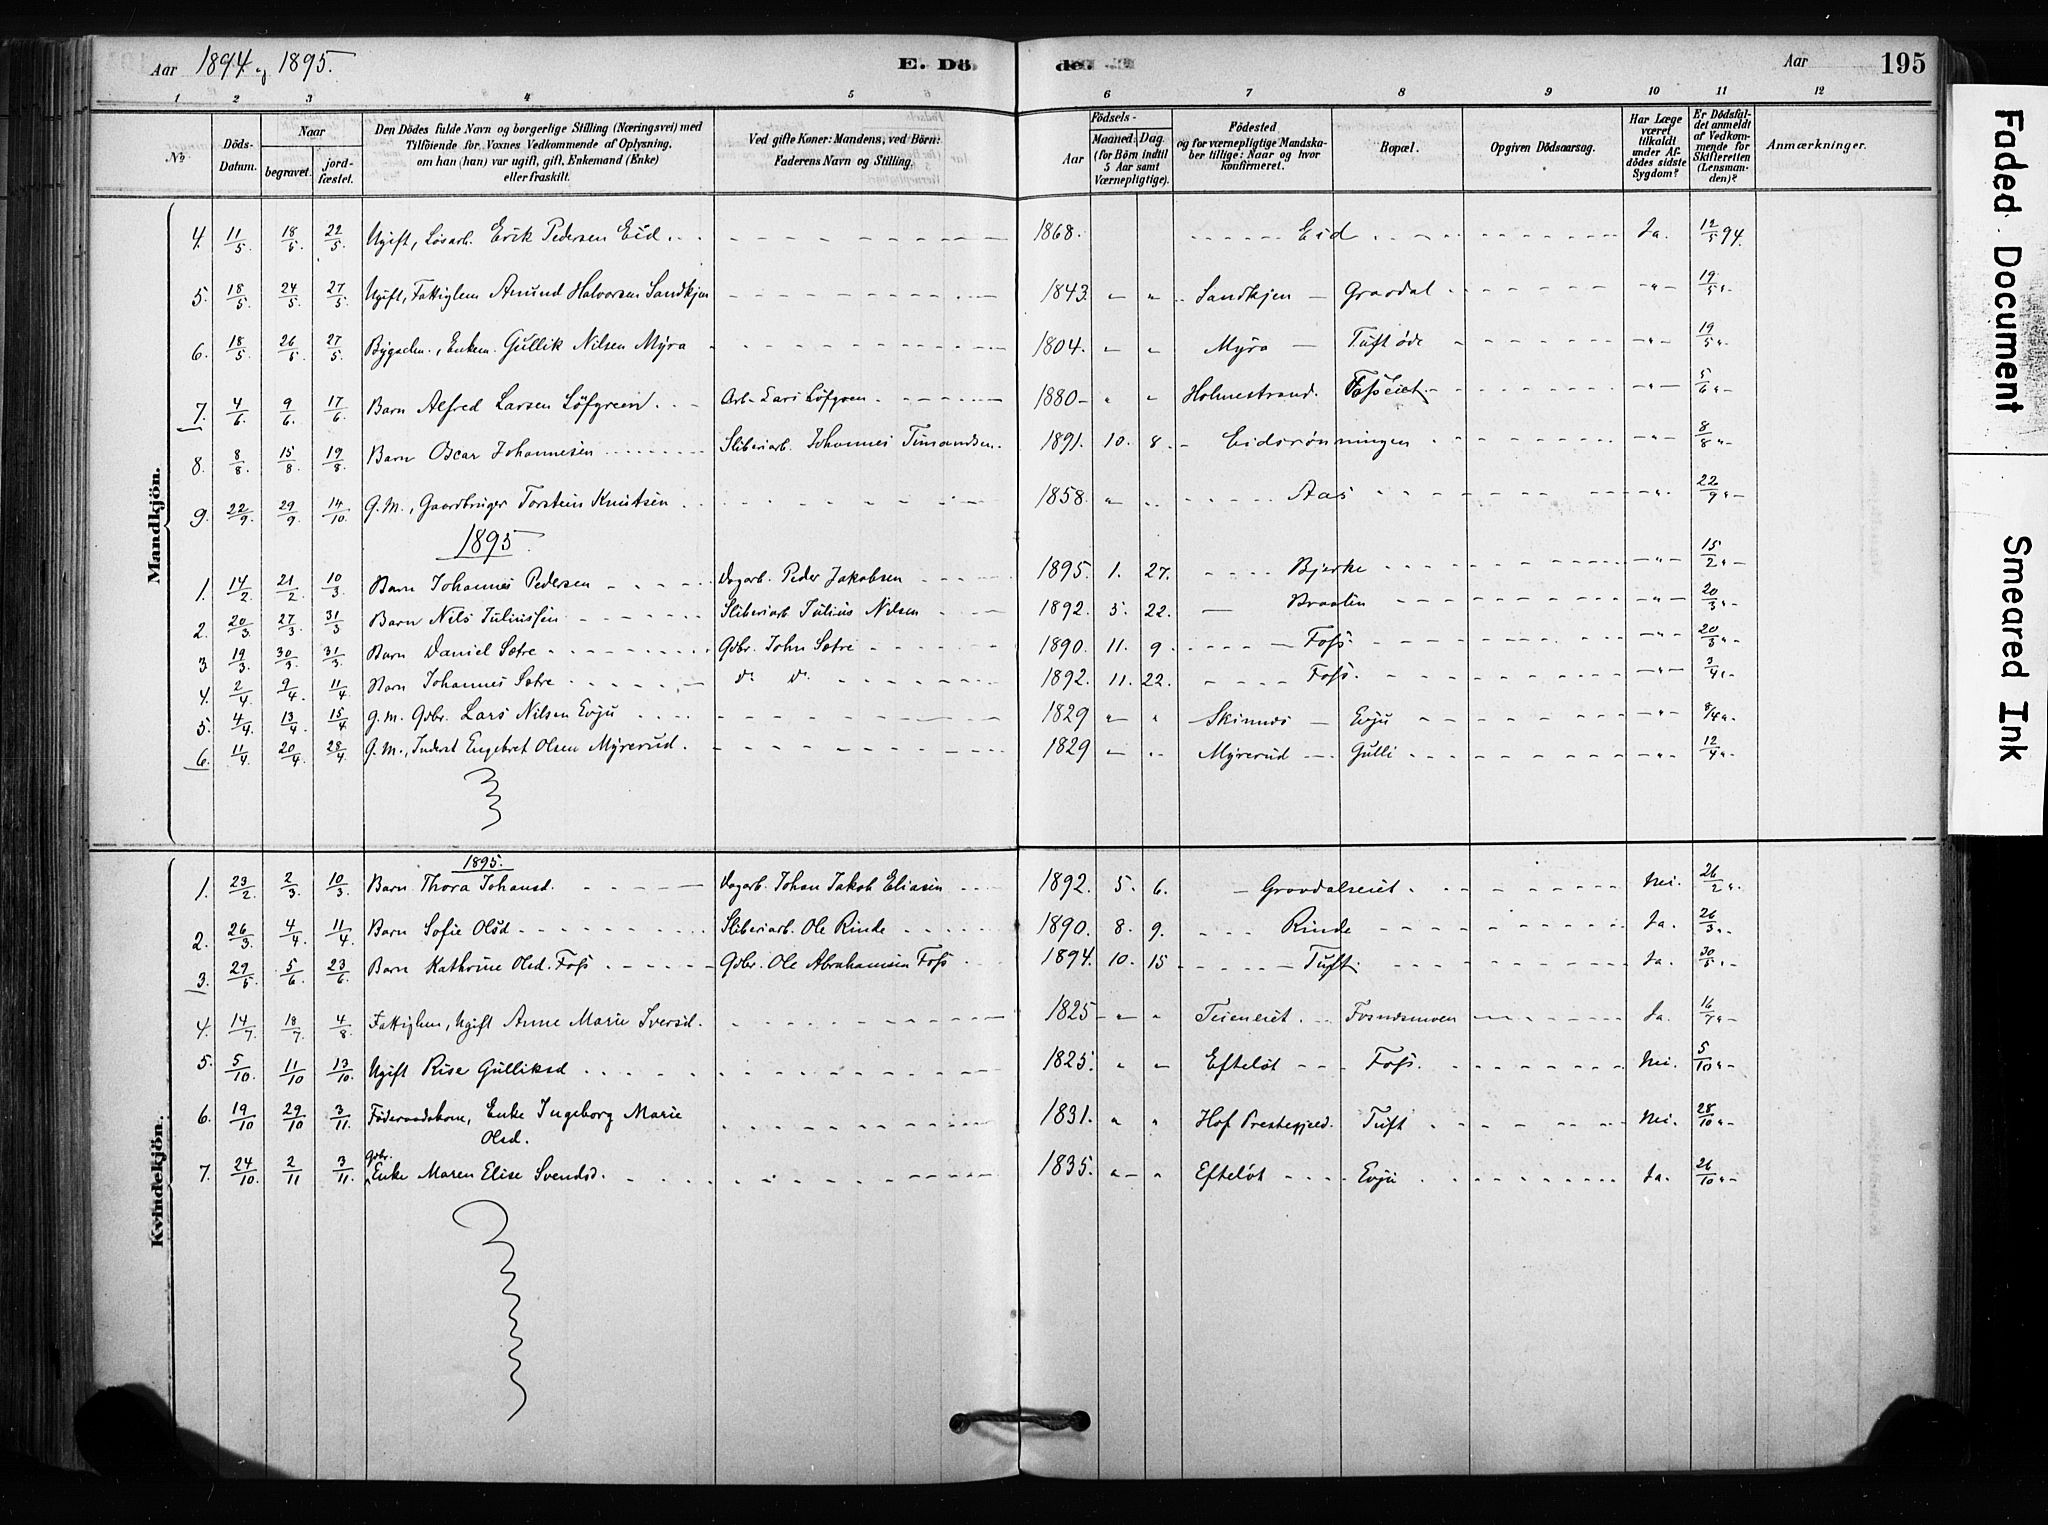 Aar 1894 og 1895. E. Dö- de. Aar 195
1 2 3 4 5 6 7 8 9 10 11 12
No
Döds-Datum.
Naar begravet. jord-fæstet.
Den Dödes fulde Navn og borgerlige Stilling (Næringsvei) med Tilföiende for Voxnes Vedkommende af Oplysning, om han (hun) var ugift, gift, Enkemand (Enke) eller fraskilt.
Ved gifte Koner: Mandens, ved Börn: Faderens Navn og Stilling.
Födsels- Aar Maaned. Dag. (for Börn indtil 5 Aar samt Værnepligtige).
Födested og for værnepligtige Mandskaber tillige: Naar og hvor konfirmeret.
Bopæl.
Opgiven Dödsaarsag.
Har Læge været tilkaldt under Afdödes sidste Sygdom?
Er Dödsfaldet anmeldt af Vedkommende for Skifteretten (Lensmanden)?
Anmærkninger.
Mandkjön.
4. 11/5 18/5 22/5 Ugift, Løsarb. Erik Pedersen Eid 1868. Eid Ja. 12/5 94.
5. 18/5 24/5 27/5 Ugift, Fattiglem Amund Halvorsen Sandkjen 1843. Sandkjen Gravdal 19/5
6. 18/5 26/5 27/5 Bygselm., Enkem. Gullik Nilsen Myra 1804. Myra Tuft øde 19/5
7. 4/6 9/6 17/6 Barn Alfred Larsen Löfgreen. Arb. Lars Löfgren 1880 Holmestrand. Fosseiet 5/6
8. 8/8 15/8 19/8 Barn Oscar Johannesen Sliberiarb. Johannes Timandsen 1891. 10. 8. Eidsrønningen 8/8
9. 22/9 29/9 14/10 G. M., Gaardbruger Torstein Knutsen 1858. Aas 22/9
1895
1. 14/2 21/2 10/3 Barn Johannes Pedersen Dagarb. Peder Jakobsen 1895. 1. 27. Bjerke 15/2
2. 20/3 27/3 31/3 Barn Nils Juliussen Sliberiarb. Julius Nilsen 1892. 5. 22. Braaten 20/3
3 19/3 30/3 31/3 Barn Daniel Sætre Gdbr. John Sætre 1890. 11. 9. Foss. 20/3
4. 2/4 9/4 11/4 Barn Johannes Sætre do do 1892. 11. 22. Foss. 3/4
5. 4/4 13/4 15/4 G. M. Gdbr. Lars Nilsen Evju 1829 Skinnes Evju 8/4
6. 11/4 20/4 28/4 G. M., Inderst Engebret Olsen Myrerud. 1829 Myrerud Gulli 12/4
Kvindekjön.
1895.
1. 23/2 2/3 10/3 Barn Thora Johansd. Dagarb. Johan Jakob Eliasen 1892. 5. 6. Gravdalseiet Nei. 26/2
2. 26/3 4/4 11/4 Barn Sofie Olsd Sliberiarb. Ole Rinde 1890. 8. 9. Rinde Ja. 26/3
3. 29/5 5/6 23/6 Barn Kathrine Olsd. Foss Gdbr. Ole Abrahamsen Foss 1894. 10. 15 Tuft Ja. 30/5
4. 14/7 18/7 4/8 Fattiglem, Ugift Anne Marie Iversd. 1825 Teieneiet Fosnesmoen Ja. 16/7
5. 5/10 11/10 13/10 Ugift Rise Gulliksd 1825. Efteløt Foss. Nei. 5/10
6. 19/10 29/10 3/11 Föderaadskone, Enke Ingeborg Marie Olsd. 1831. Hof Prestegjeld. Tuft Nei. 28/10
7. 24/10 2/11 3/11 Gdbr. Enke Maren Elise Svendsd. 1835. Efteløt Evju Ja. 26/10
Faded Document
Smeared Ink